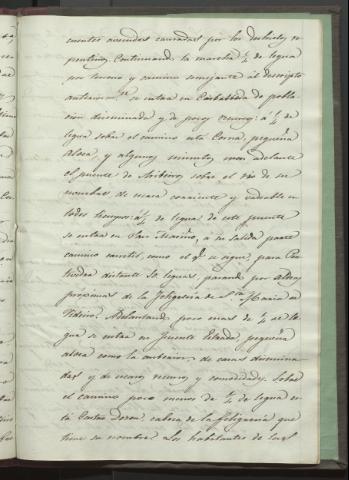 cuentes avenidas causadas por los deshielos re
pentinos. Continuando la marcha ¼ de legua
por terreno y camino semejante al descripto
anteriorm.te se entra en Carballeda de pobla-
cion diseminada y de pocos vecinos: á ¼ de
legua sobre el camino está Corna, pequeña
aldea, y algunos minutos mas adelante
el puente de Ribeiro, sobre el rio de su
nombre de escasa corriente y vadeable en
todos tiempos: á ½ de legua de este puente
se entra en San Mauro, a su salida parte
camino carretil, como el q.e se sigue, para Pon-
tevedra distante 10 leguas, pasando por aldeas
próximas de la feligresia de S.ta Maria de
. Adelantando poco mas de ¼ de le-
gua se entra en Puente , pequeña
aldea como la anterior, de casas disemina-
das y de escaso recurso y comodidades. Sobre
el camino poco menos de ¼ de legua es-
tá Castro Dozon, cabeza de la feligresia que
tiene su nombre. Los habitantes de las